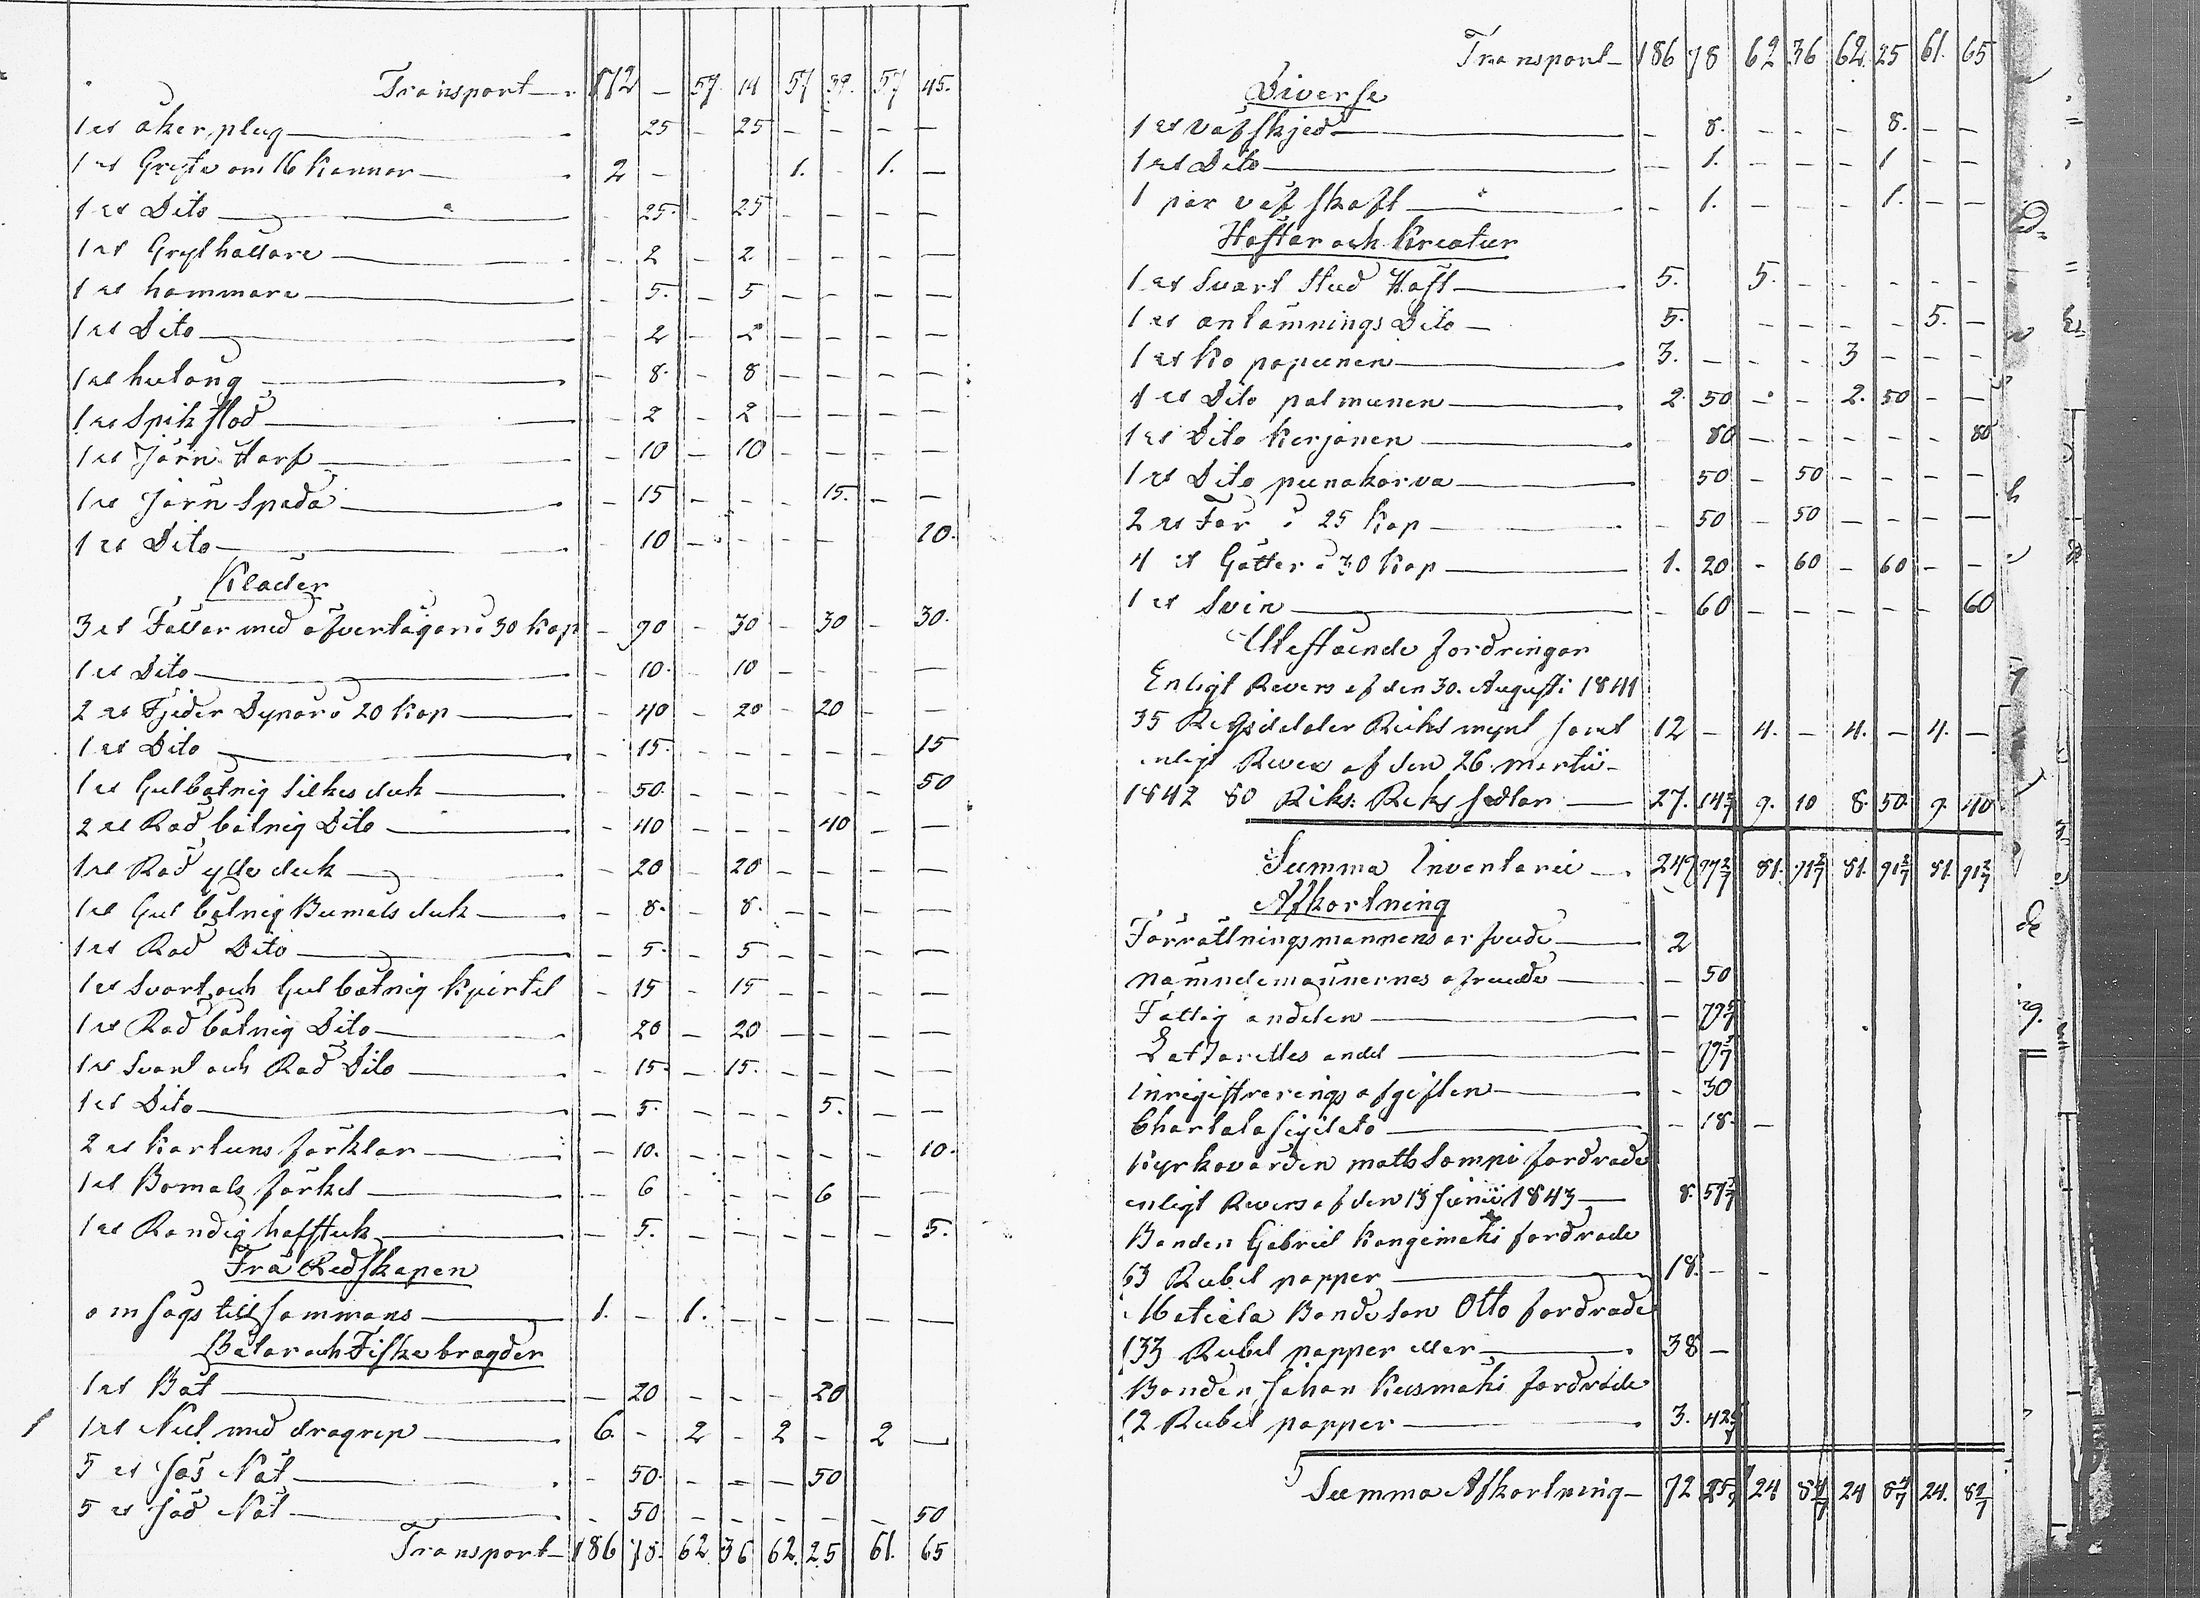 Transport 172 — 57. 14 57 39. 57 45.
1 st åker plog — 25 — 25 — — — —
1 st Gryta om 16 Kannor 2 — 1. — 1. —
1 st Dito — 25. — 25 — — — —
1 st Grythållare — 2 — 2 — — — —
1 st hammare — 5. — 5 — — — —
1 st Dito — 2 — 2 — — — —
1 st hutång — 8. — 8 — — — —
1 st Spik stod — 2 — 2 — — — —
1 st Järn Harf — 10 — 10 — — — —
1 st Järn Spada — 15 — — — 15. — —
1 st Dito — 10 — — — — — 10.
Kläder
3 st Fällar med öfverlagor à 30 Kop — 90 — 30 — 30 — 30.
1 st Dito — 10. — 10 — — — —
2 st Fjeder Dynor à 20 Kop — 40 — 20 — 20 — —
1 st Dito — 15. — — — — — 15
1 st Gulbotnig Silkes duk — 50. — — — — — 50
2 st Röd botnig Dito — 40 — — — 40 — —
1 st Röd ylle duk — 20 — 20 — — — —
1 st Gul botnig Bumuls duk — 8. — 8. — — — —
1 st Röd Dito — 5. — 5 — — — —
1 st Svart och Gul botnig Kjortel — 15 — 15 — — — —
1 st Röd botnig Dito — 20 — 20 — — — —
1 st Svart och Röd Dito — 15. — 15. — — — —
1 st Dito — 5. — — — 5. — —
2 st Kartuns förklar — 10. — — — — — 10.
1 st Bomuls förkel — 6 — — — 6 — —
1 st Randig halsduk — 5. — — — — — 5.
Trä Redskapen
omsågs tillsammans 1. — 1. — — — — —
Båtar och Fiskebragder
1 st Båt — 20 — — — 20 — —
1 st Not med dragrep 6. — 2 — 2 — 2 —
5 st Nät — 50. — — — 50 — —
5 st Nät — 50 — — — — — 50
Transport 186 78. 62 36 62. 25 61. 65
Transport 186 78 62 36 62. 25 61. 65
Diverse
1 st väfskjed — 8. — — — 8. — —
1 st Dito — 1. — — — 1 — —
1 par väf skaft — 1. — — — 1. — —
Hästar och Kreatur
1 st Svart Stod Häst 5. 5. — — — — —
1 st anlämnings Dito 5. — — — — 5. —
1 st Ko papunen 3. — — — 3 — — —
1 st Dito palmunen 2. 50 — — 2. 50 — —
1 st Dito Kerjonen 80 — — — — — 80
1 st Dito punakorva 50 — 50 — — — —
2 st Får à 25 Kop — 50 — 50 — — — —
4 st Getter à 30 Kop 1. 20 — 60 — 60 — —
1 st Svin — 60 — — — — — 60
Utestående fordringar
Enligt Revers af den 30. Augusti 1841
35 Riksdaler Riks mynt samt 12 — 4. — 4. — 4. —
enligt Revers af den 26. Martii
1842 80 Riks: Riks sedlar 27. 14 2/7 9. 10 8. 50 9. 40
Summa Inventarii 247 77 2/7 81. 71 3/7 81. 91 2/7 81. 91 2/7
Afkortning
Förrättningsmannens arfvode 2
nämndemännernes arfvode — 50
Fattig andelen — 79 5/7
Lasarettes andel — 79 5/7
Inregistrerings afgiften — 30
Chartala Sigilato — 18. —
Kyrkovärden Mats Sompi fordrade
enligt Revers af den 13 Junii 1843 8. 57 1/7
Bonden Gabriel Kangimaki fordrade
63 Rubel papper 18. — —
Bonde son Otto fordrade
133 Rubel papper eller 38 —
Bonden Johan Kusmaki fordrade
12 Rubel papper 3. 42 6/7
Summa Afkortning 72 25 5/7 24 8 4/7 24 8 4/7 24. 8 4/7